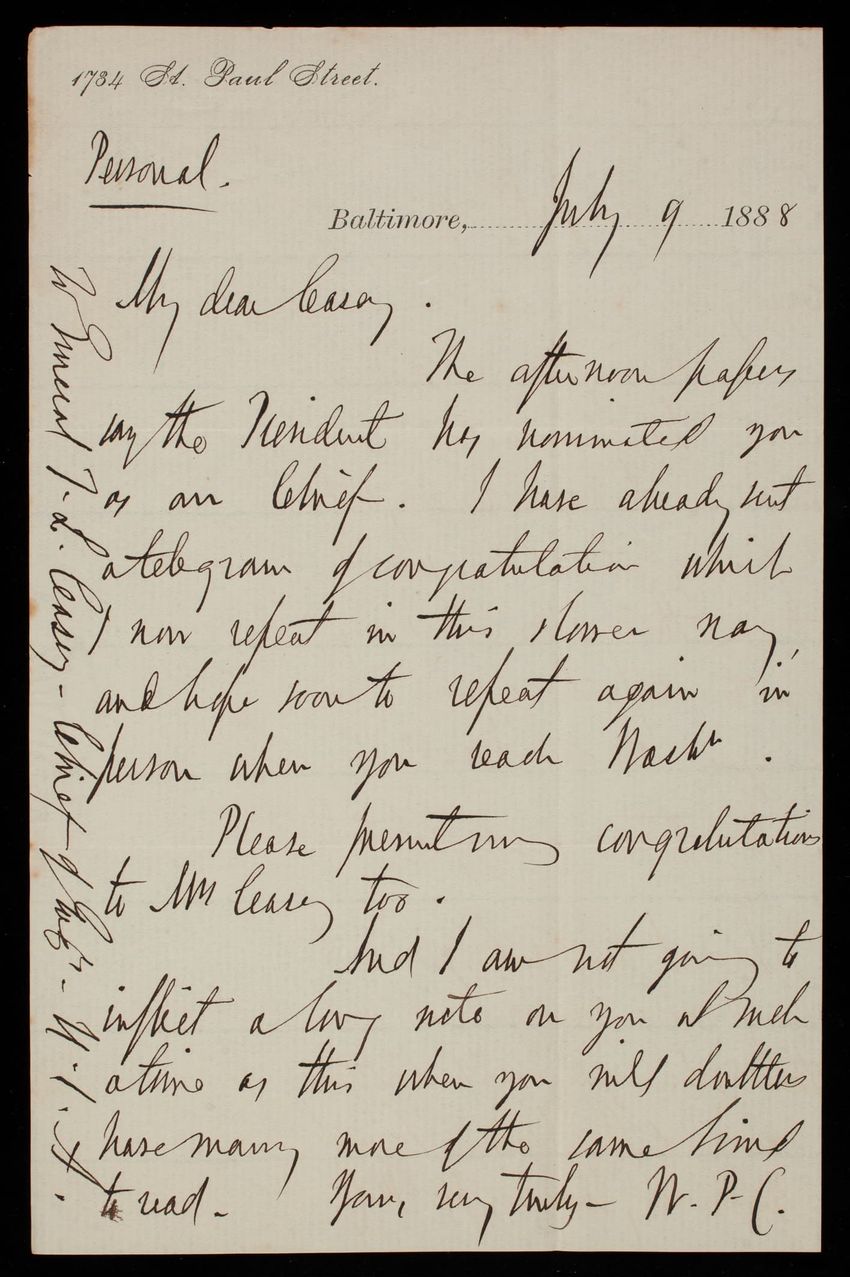 1734 St. Paul Street.
Personal.
Baltimore, July 9 1888
My dear Casey.
The afternoon papers
say the President has nominated you
as our Chief. I have already sent
a telegram of congratulation which
I now repeat in this slower way,
and hope soon to repeat again in
person when you reach Washn.
Please present my congratulations
to Mrs Casey too.
And I am not going to
inflict a long note on you at such
a time as this when you will doubtless
have many more of the same kind
to read. Yours very truly - W. P. C.
To General T. L. Casey - Chief of Engrs - U. S. A.